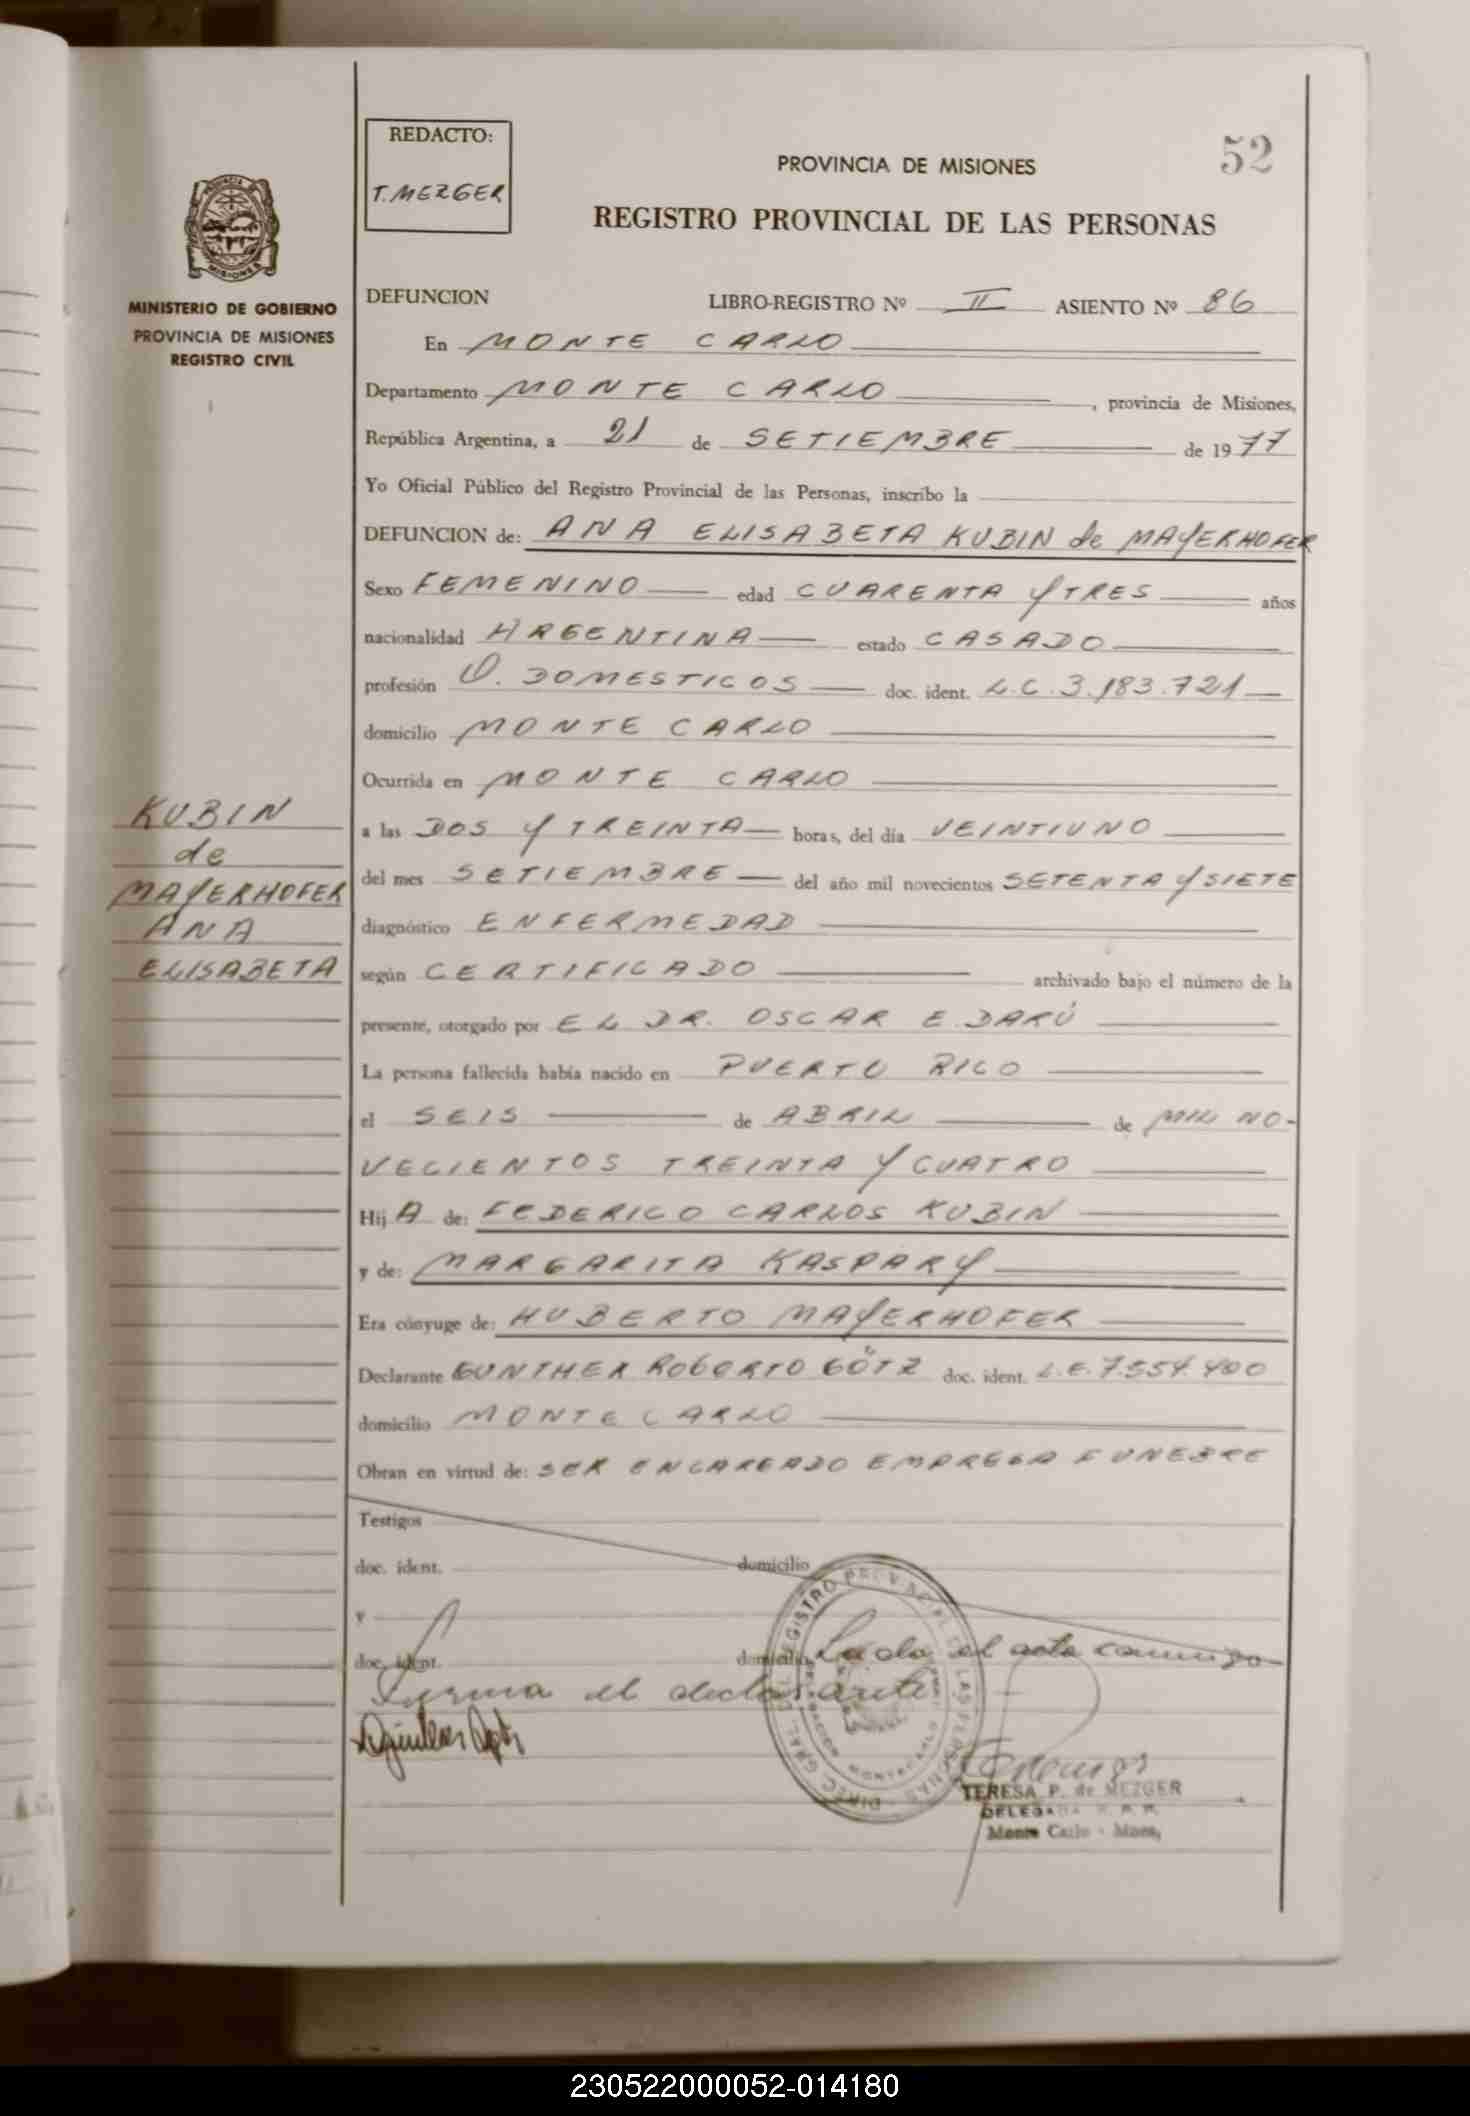 52
REDACTO:
T. MEZGER
PROVINCIA DE MISIONES
REGISTRO PROVINCIAL DE LAS PERSONAS
MINISTERIO DE GOBIERNO
PROVINCIA DE MISIONES
REGISTRO CIVIL
DEFUNCION LIBRO-REGISTRO Nº II ASIENTO Nº 86
En MONTE CARLO
Departamento MONTE CARLO, provincia de Misiones,
República Argentina, a 21 de SETIEMBRE de 1977
Yo Oficial Público del Registro Provincial de las Personas, inscribo la
DEFUNCION de: ANA ELISABETA KUBIN de MAYERHOFER
Sexo FEMENINO edad CUARENTA Y TRES años
nacionalidad ARGENTINA estado CASADO
profesión Q. DOMESTICOS doc. ident. L.C. 3.183.721
domicilio MONTE CARLO
Ocurrida en MONTE CARLO
KUBIN
de
MAYERHOFER
ANA
ELISABETA
a las DOS Y TREINTA horas, del día VEINTIUNO
del mes SETIEMBRE del año mil novecientos SETENTA Y SIETE
diagnóstico ENFERMEDAD
según CERTIFICADO archivado bajo el número de la
presente, otorgado por EL DR. OSCAR E. DARÚ
La persona fallecida había nacido en PUERTO RICO
el SEIS de ABRIL de MIL NO-
VECIENTOS TREINTA Y CUATRO
Hij A de: FEDERICO CARLOS KUBIN
y de: MARGARITA KASPARY
Era cónyuge de: HUBERTO MAYERHOFER
Declarante GUNTHER ROBERTO GÖTZ doc. ident. L.E. 7.554.400
domicilio MONTE CARLO
Obran en virtud de: SER ENCARGADO EMPRESA FUNEBRE
Testigos
doc. ident. domicilio
y
doc. ident. domicilio Leída el acta conmigo
Firma el declarante
TERESA P. de MEZGER
DELEGADA R. P. P.
Monte Carlo - Mnes,
230522000052-014180